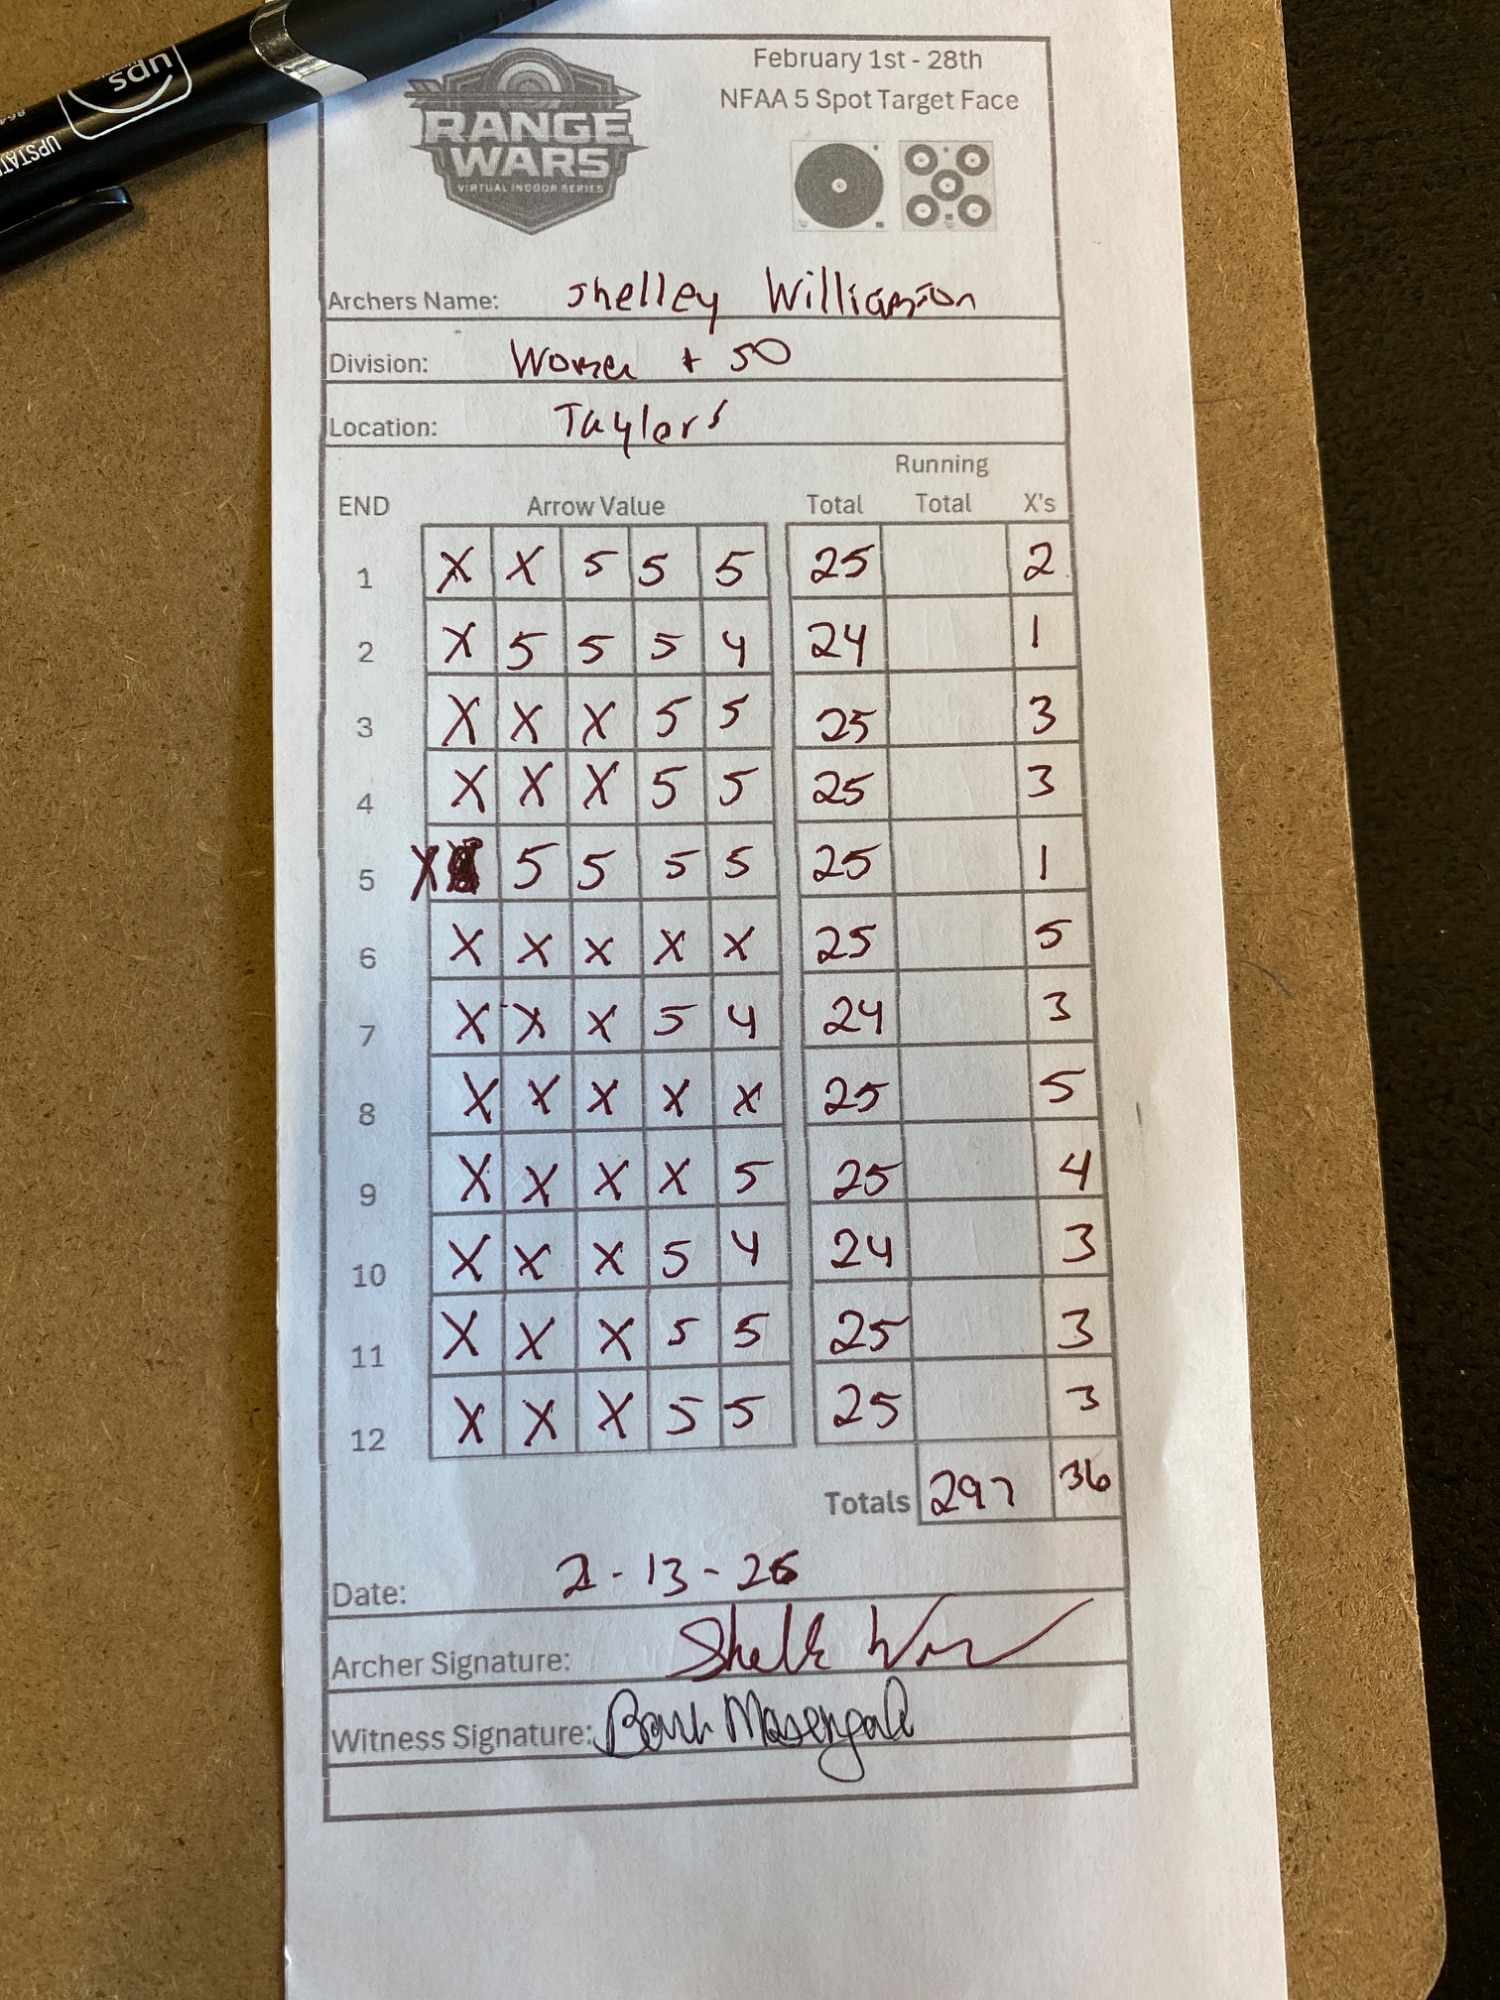 ups
UPSTAT
864
February 1st - 28th
NFAA 5 Spot Target Face
RANGE
WARS
VIRTUAL INDOOR SERIES
Archers Name: Shelley Williamson
Division: Women + 50
Location: Taylors
Running
END Arrow Value Total Total X's
1 X X 5 5 5 25 2
2 X 5 5 5 4 24 1
3 X X X 5 5 25 3
4 X X X 5 5 25 3
5 X 5 5 5 5 25 1
6 X X X X X 25 5
7 X X X 5 4 24 3
8 X X X X X 25 5
9 X X X X 5 25 4
10 X X X 5 4 24 3
11 X X X 5 5 25 3
12 X X X 5 5 25 3
Totals 297 36
Date: 2-13-26
Archer Signature:
Witness Signature: